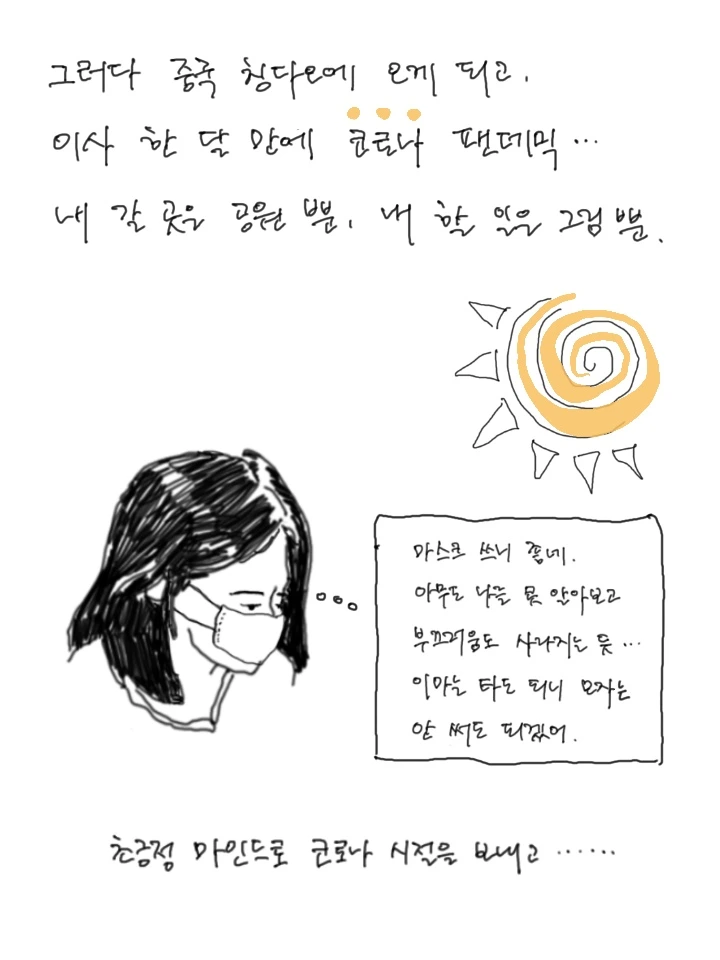 그러다 중국 칭다오에 오게 되고,
이사 한 달 만에 코로나 팬데믹...
내 갈 곳은 공원 뿐, 내 할 일은 그림 뿐.
마스크 쓰니 좋네.
아무도 나를 못 알아보고
부끄러움도 사라지는 듯...
이마는 타도 되니 모자는
안 써도 되겠어.
초긍정 마인드로 코로나 시절을 보내고 ······